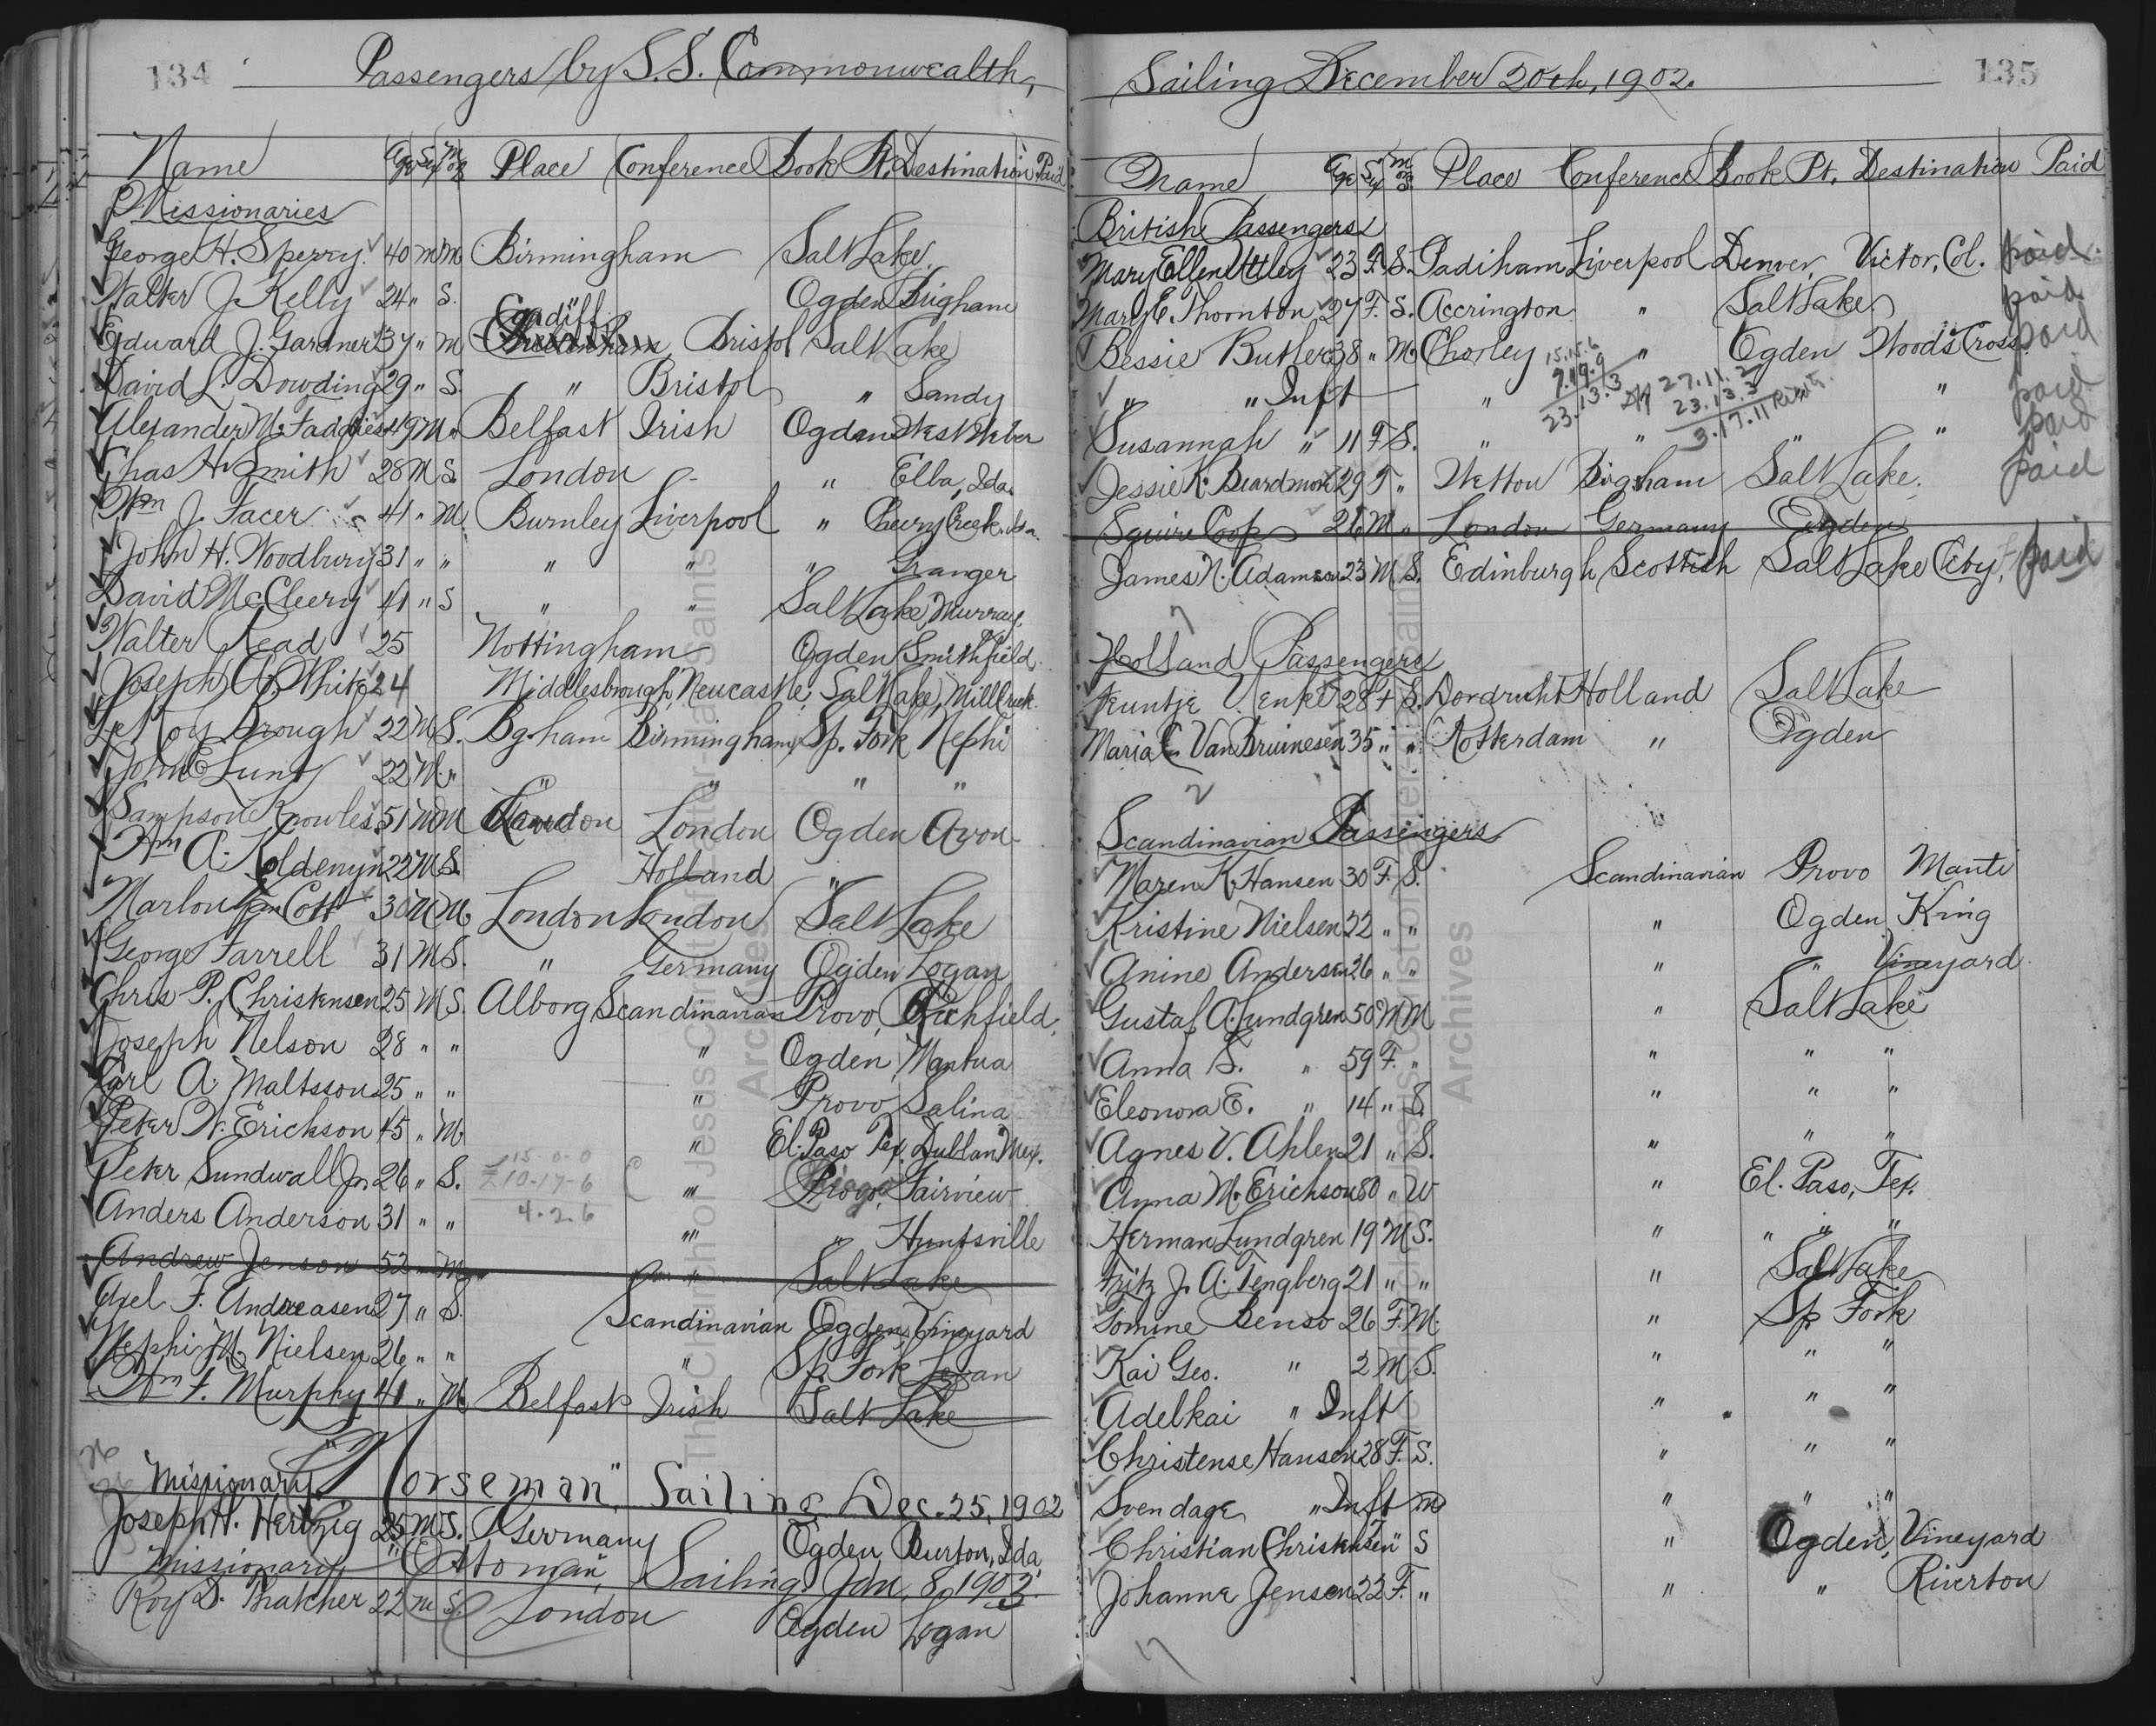 134
Passengers by S.S. Commonwealth,
Name Age Sex M or S Place Conference Book Pt. Destination Paid
Missionaries
George H. Sperry 40 m M Birmingham Salt Lake
Walter J. Kelly 24 " S. Ogden Brigham
Cardiff
Edward J. Gardner 37 " M Cheltenham, Bristol Salt Lake
David L. Dowding 29 " S. " Bristol " Sandy
Alexander M. Faddies 49 M " Belfast Irish Ogden West Weber
Chas H. Smith 28 M S. London " Elba, Ida.
Wm J. Facer 41 " M Burnley Liverpool " Cherry Creek, Ida.
John H. Woodbury 31 " " " " " Granger
David McCleery 41 " S " " Salt Lake, Murray.
Walter Read 25 Nottingham Ogden Smithfield.
Joseph A. White 24 Middlesbrough, Newcastle, Salt Lake, Millcreek.
LeRoy Brough 22 M S. Bgham Birmingham, Sp. Fork Nephi
John E Lunt 22 M " " " " "
Sampson Knowles 51 M M London London Ogden Avon
Wm A. Koldenyn 22 M S. Holland "
Marlon Van Cott 30 M M. London London Salt Lake
George Farrell 31 M S. " Germany Ogden Logan
Chris P. Christensen 25 M S. Alborg Scandinavian Provo, Richfield,
Joseph Nelson 28 " " " Ogden, Mantua
Carl A. Maltsson 25 " " " Provo, Salina
Peter N. Erickson 45 " M. " El. Paso Tex. Dublan Mex.
15-0-0
Peter Sundwall Jr. 26 " S. 10-17-6 " Provo, Fairview
4.2.6
Anders Anderson 31 " " " " Huntsville
Andrew Jenson 52 " M " Salt Lake
Axel F. Andreasen 27 " S. Scandinavian Ogden, Vineyard
Nephi M. Nielsen 26 " " " Sp. Fork Levan
Wm F. Murphy 41 " M Belfast Irish Salt Lake
26
Missionary "Norseman," Sailing Dec. 25, 1902
Joseph H. Hertzig 25 M S. Germany Ogden Burton, Ida
Missionary "Ottoman," Sailing Jan. 8, 1903.
Roy D. Thatcher 22 m S. London Ogden Logan
135
Sailing December 20th, 1902.
Name Age Sex M or S Place Conference Book Pt. Destination Paid
British Passengers
Mary Ellen Uttley 23 F. S. Padiham Liverpool Denver, Victor, Col. paid
Mary E. Thornton 27 F. S. Accrington " Salt Lake paid
Bessie Butler 38 " M. Chorley " Ogden Woods Cross. paid
" " Inft " " paid
15.15.6
7.19.9
23.13.3
27.11.2
23.13.3
3.17.11
Susannah " 11 F S. " " " " paid
Jessie K. Beardmore 29 F " Wetton Bigham Salt Lake. paid
Squire Coop 26 M " London Germany Ogden
James N. Adamson 23 M S. Edinburgh Scottish Salt Lake City, paid
7
Holland Passengers
Teuntje Venke 28 F S. Dordrecht Holland Salt Lake
Maria C. Van Bruinesen 35 " " Rotterdam " Ogden
2
Scandinavian Passengers
Maren K. Hansen 30 F. S. Scandinavian Provo Manti
Kristine Nielsen 22 " " " Ogden, King
Anine Andersen 26 " " " " Vineyard
Gustaf A. Lundgren 50 M M " Salt Lake
Anna S. " 59 F. " " " "
Eleonora E. " 14 " S. " " "
Agnes V. Ahlen 21 " S. " " "
Anna M. Erichson 80 " W " El. Paso, Tex.
Herman Lundgren 19 M S. " " " "
Fritz J. A. Tengberg 21 " " " Salt Lake
Tomine Benso 26 F. M. " Sp Fork
Kai Geo. " 2 M S. " " "
Adelkai " Inft " " "
Christense Hansen 28 F. S. " " "
Svendage " Inft m " " "
Christian Christensen " S " Ogden, Vineyard
Johanne Jensen 22 F. " " " Riverton
17